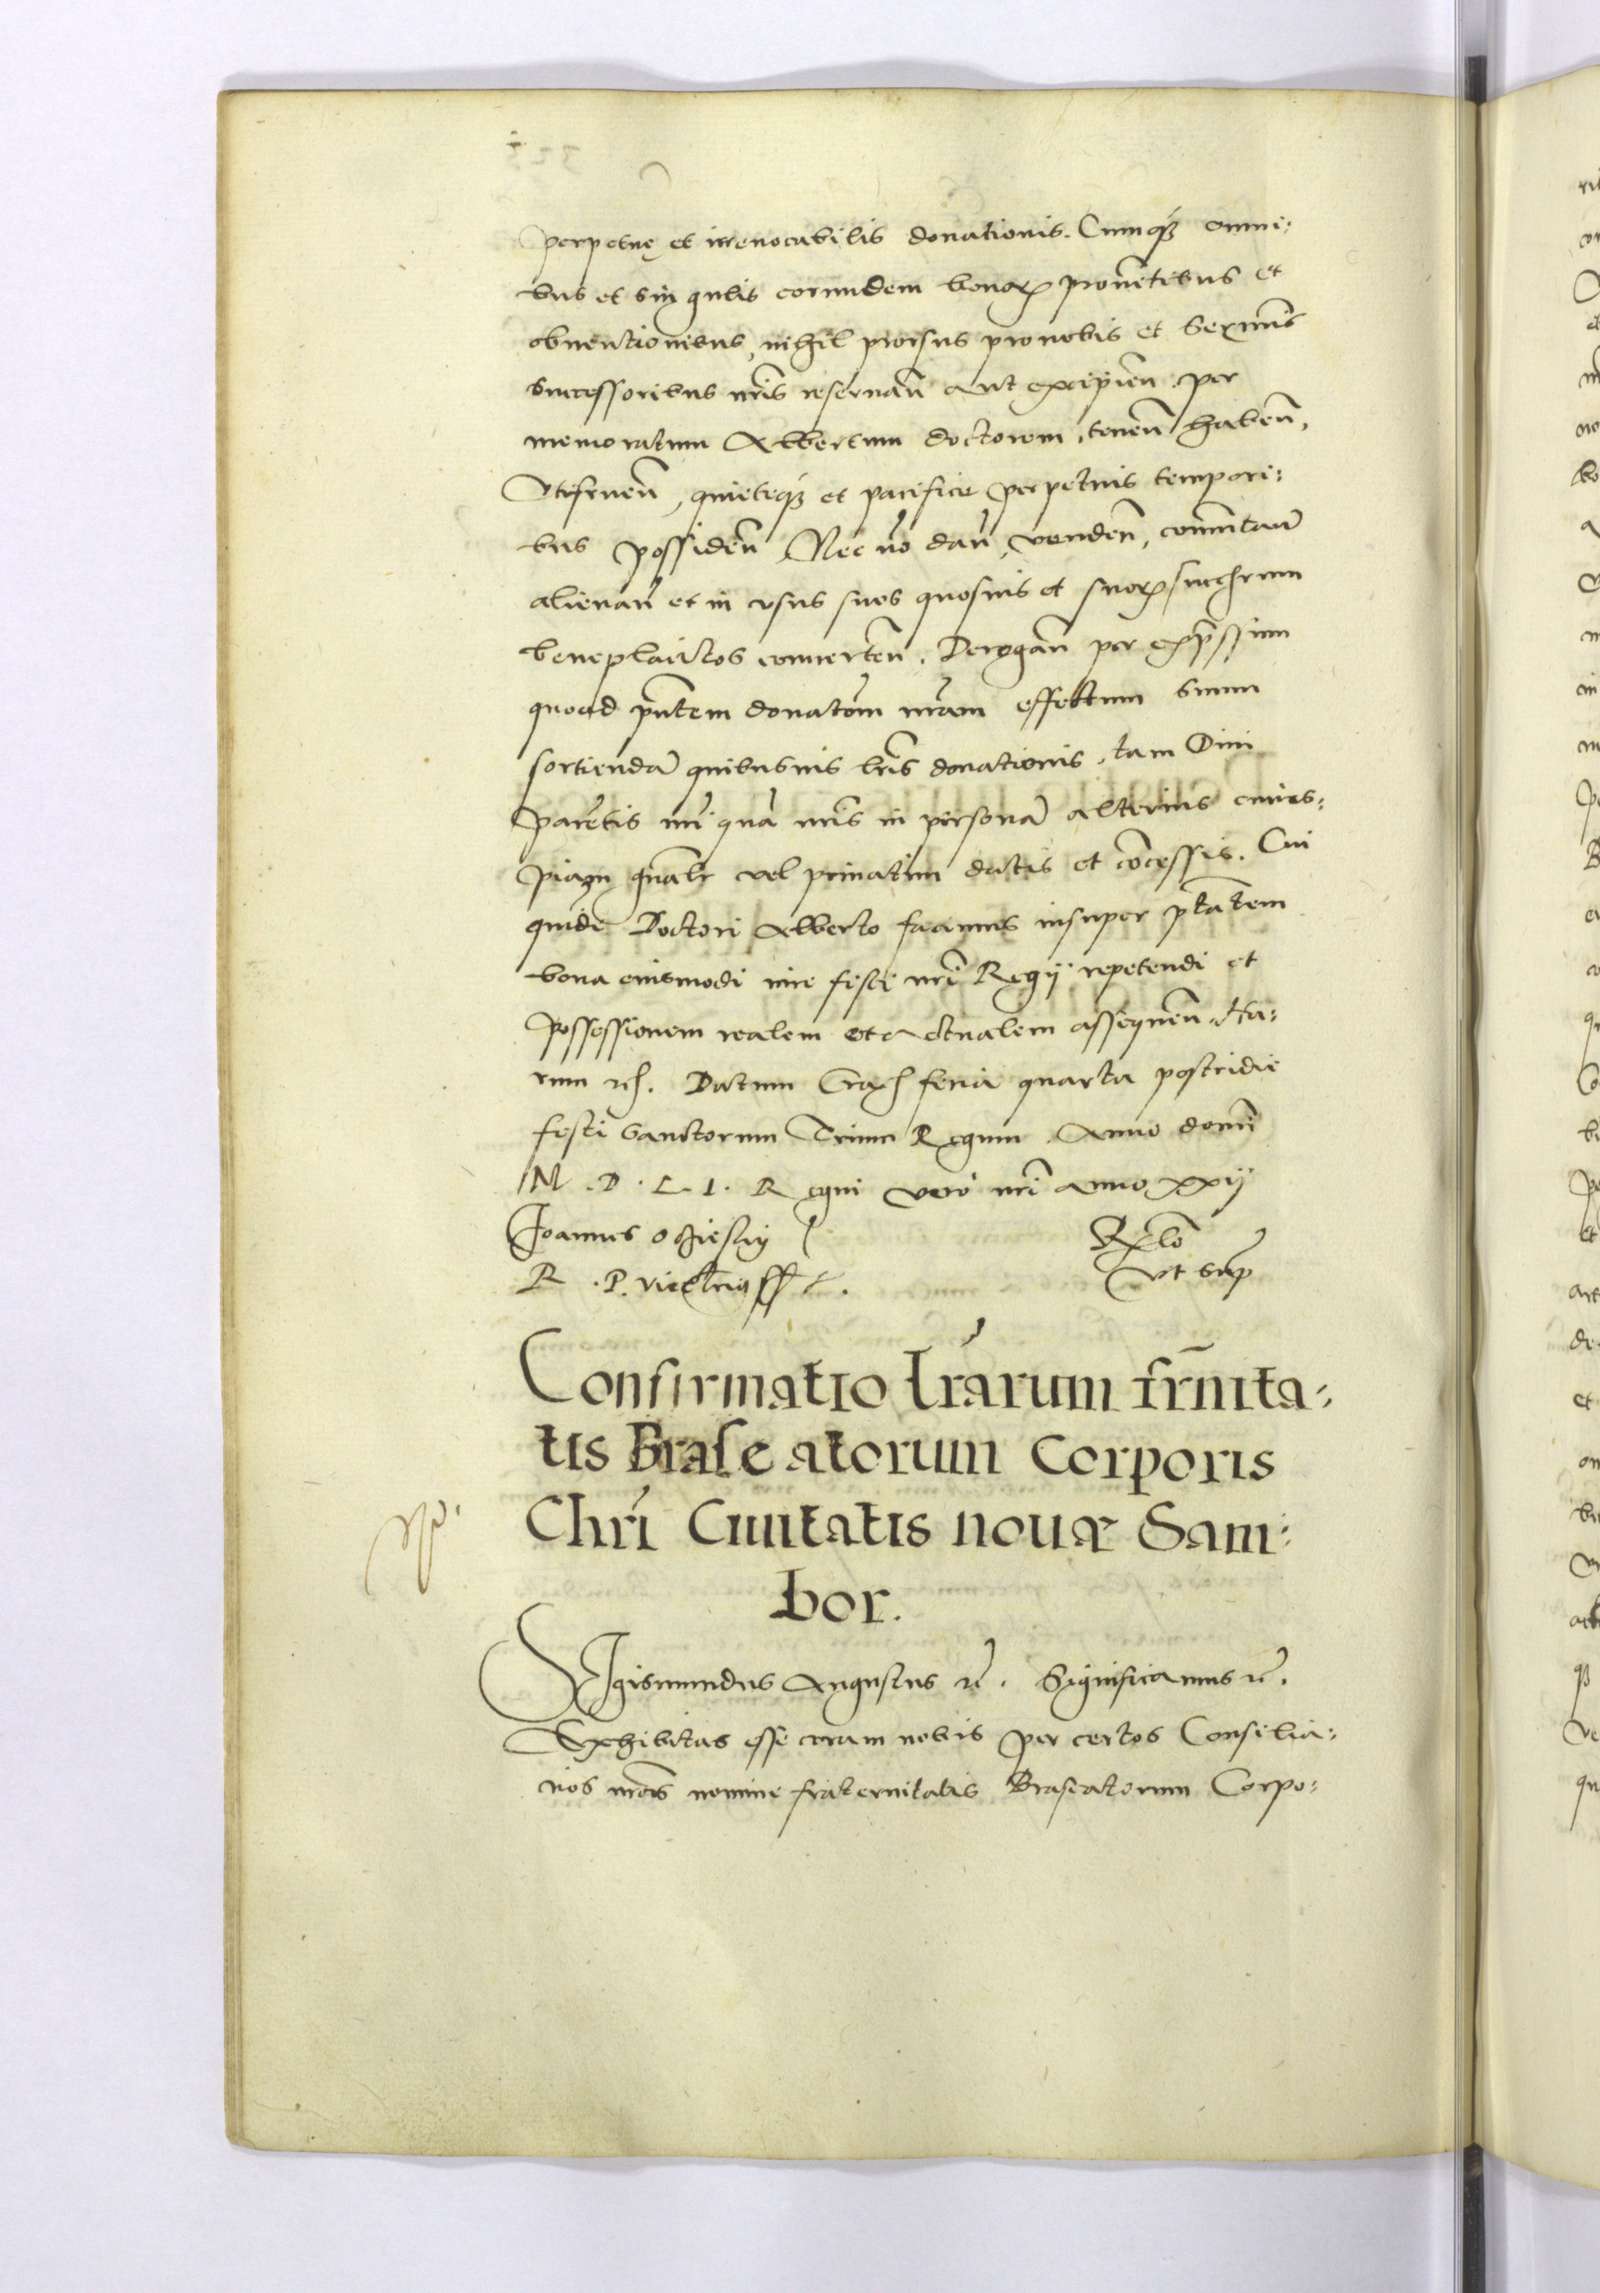 perpetuę et irreuocabilis donationis. Cumq3 omni:
bus et singulis eorundem bonorꝝ prouẽtibus et
obuentionibus, nihil prorsus pro nobis et Serẽmis
successoribus nr̃is reseruañ aut excipieñ. per
memoratum Albertum doctorem, teneñ habeñ,
Vtifrueñ, quieteq3 et pacifice perpetuis tempori:
bus possideñ Nec nõ dañ, vendeñ, cõmutañ
alienañ et in vsus suos quosuis et suorꝝ succẽrum
beneplacitos conuerteñ. Derogañ per exp̃ssum
quoad p̃ntem donatõm nr̃am effectum suum
sortiendã quibusuis lr̃is donationis, tam Diui
Parẽtis nr̃i quã nr̃is in personã alterius cuius:
piam gñalr vel priuatim datis et cõcessis. Cui
quidẽ Doctori Alberto facimus insuper p̃tatem
bona eiusmodi iure fisci nr̃i Regij repetendi et
Possessionem realem et actualem assequeñ. Ha:
rum etc. Datum Crac̃ feria quarta postridie
festi Sanctorum Trium Regum Anno domĩ
M . D . L . I . Regni vero nr̃i anno xxij
Joannes Ocziesky
Relõ
R . P . Vicecãnc ss̃t .
vt sup̃
Confirmatio lr̃arum fr̃nita:
tis Braseatorum Corporis
Chr̃i Ciuitatis nouæ Sam:
bor.
SIgismundus Augustus etc̃. Significamus etc̃.
Exhibitas esse coram nobis per certos Consilia:
rios nr̃os nomine fraternitatis Braseatorum Corpo: